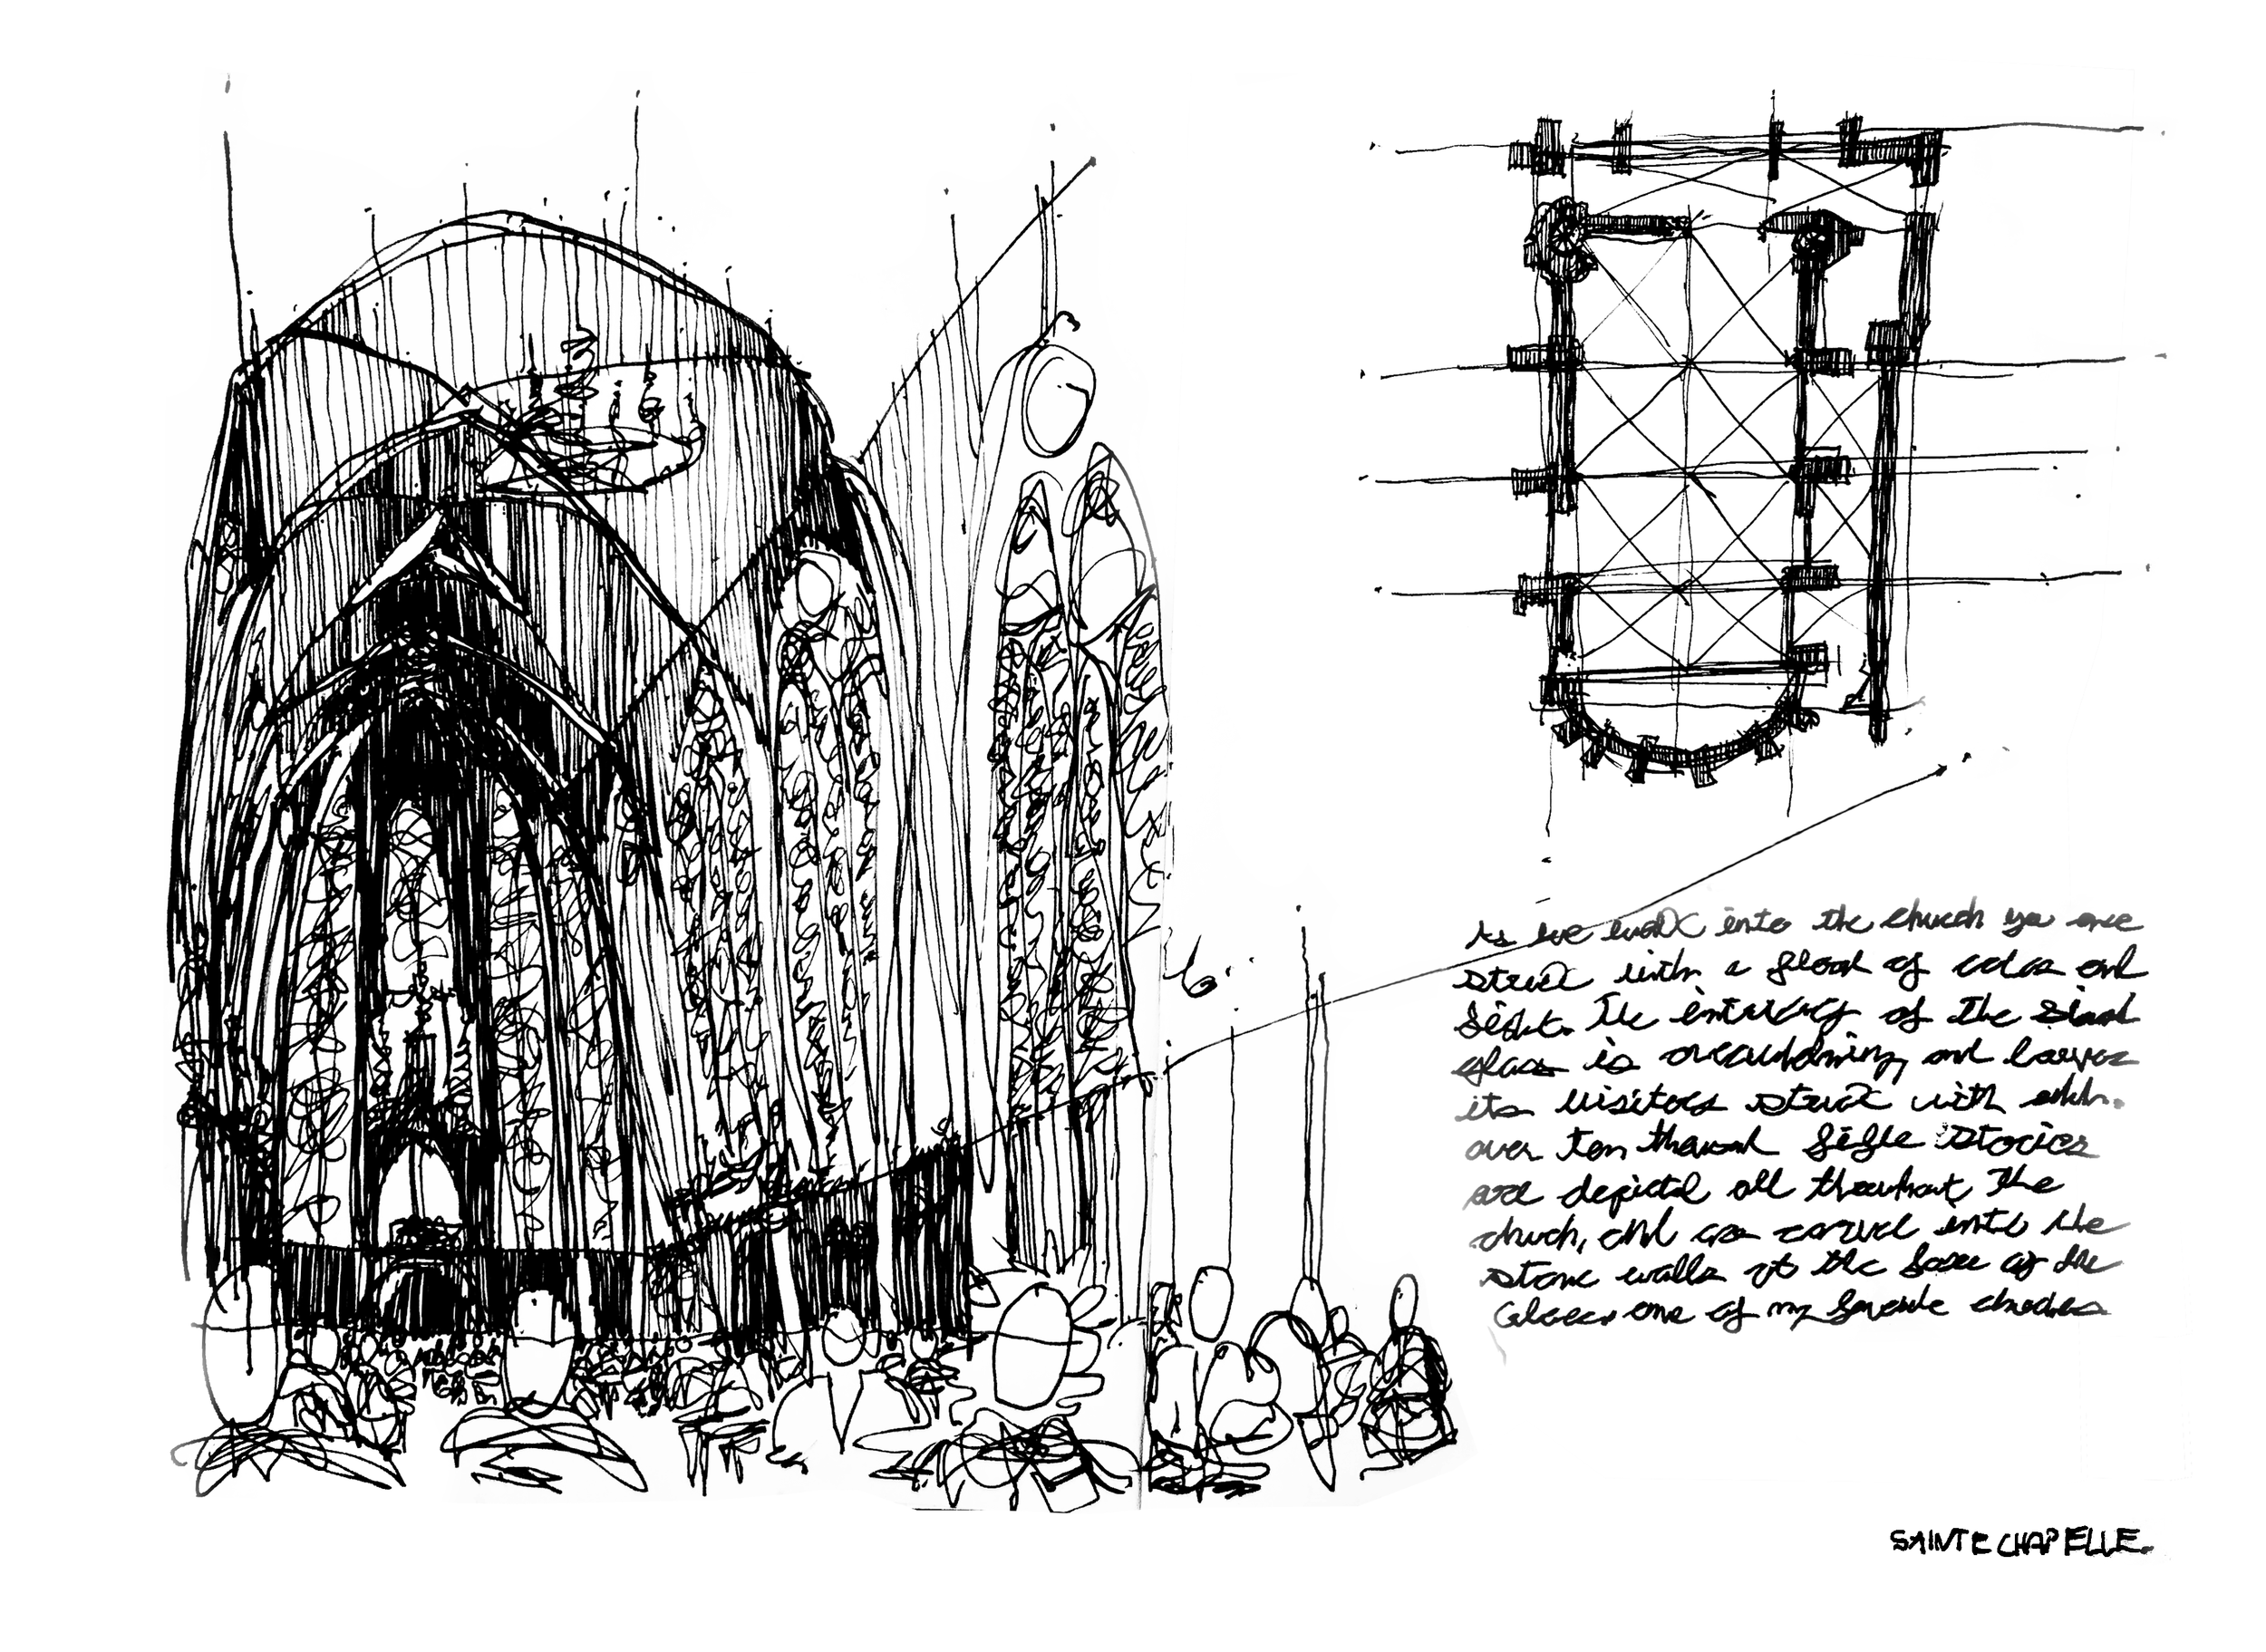 As we walk into the church you are
struck with a flood of color and
light. The intricacy of the
glass is and leaves
its visitors struck with
over ten thousand Bible stories
are depicted all throughout the
church, and are carved into the
stone walls at the base of the
glass. one of my favorite churches
SAINTE CHAPELLE.